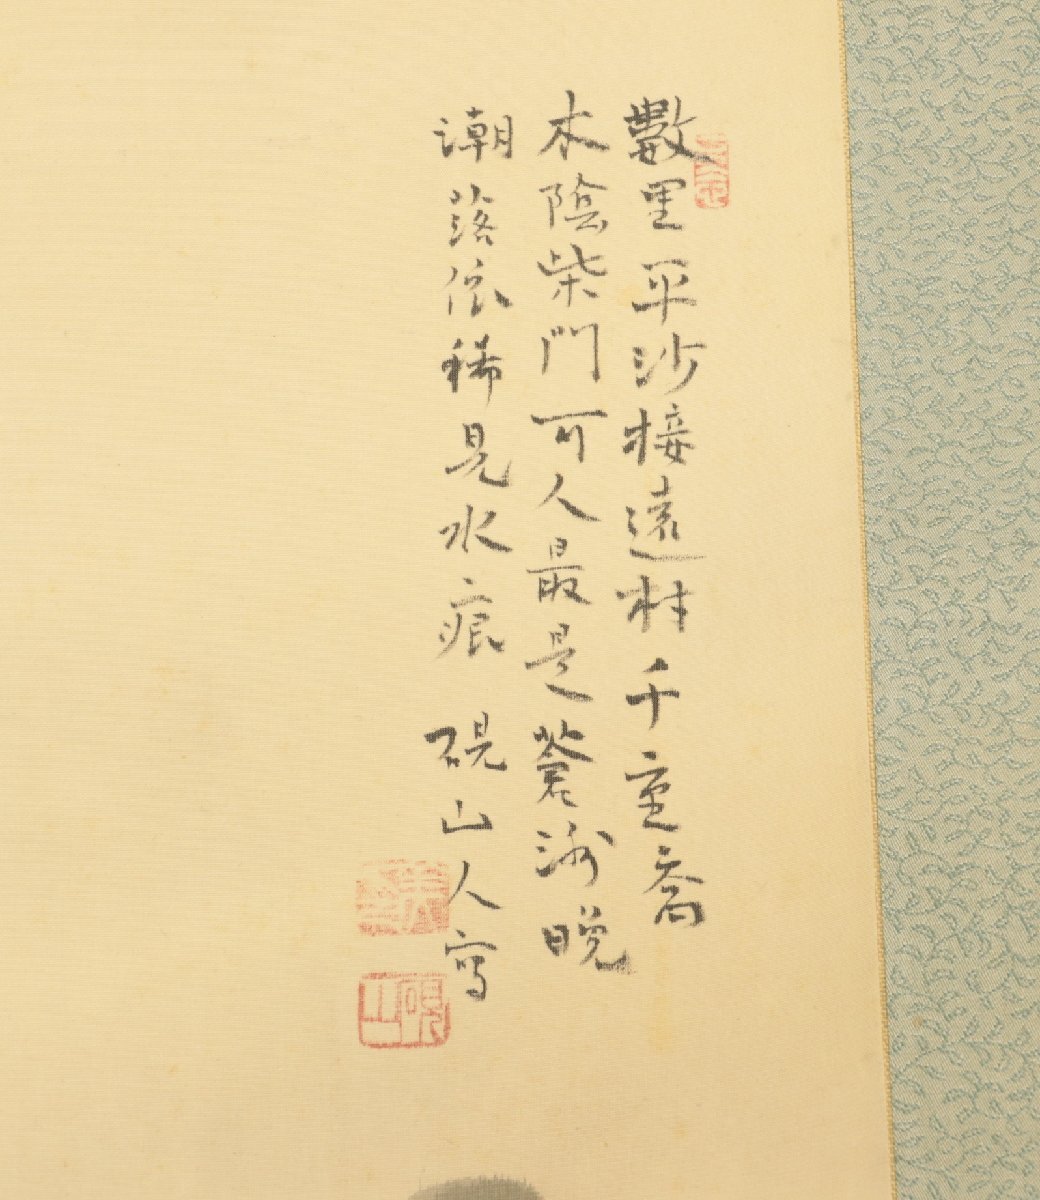 數里平沙接遠村千重喬
木陰柴門可人最是蒼洲晚
潮落依稀見水痕 硯山人寫
硯山